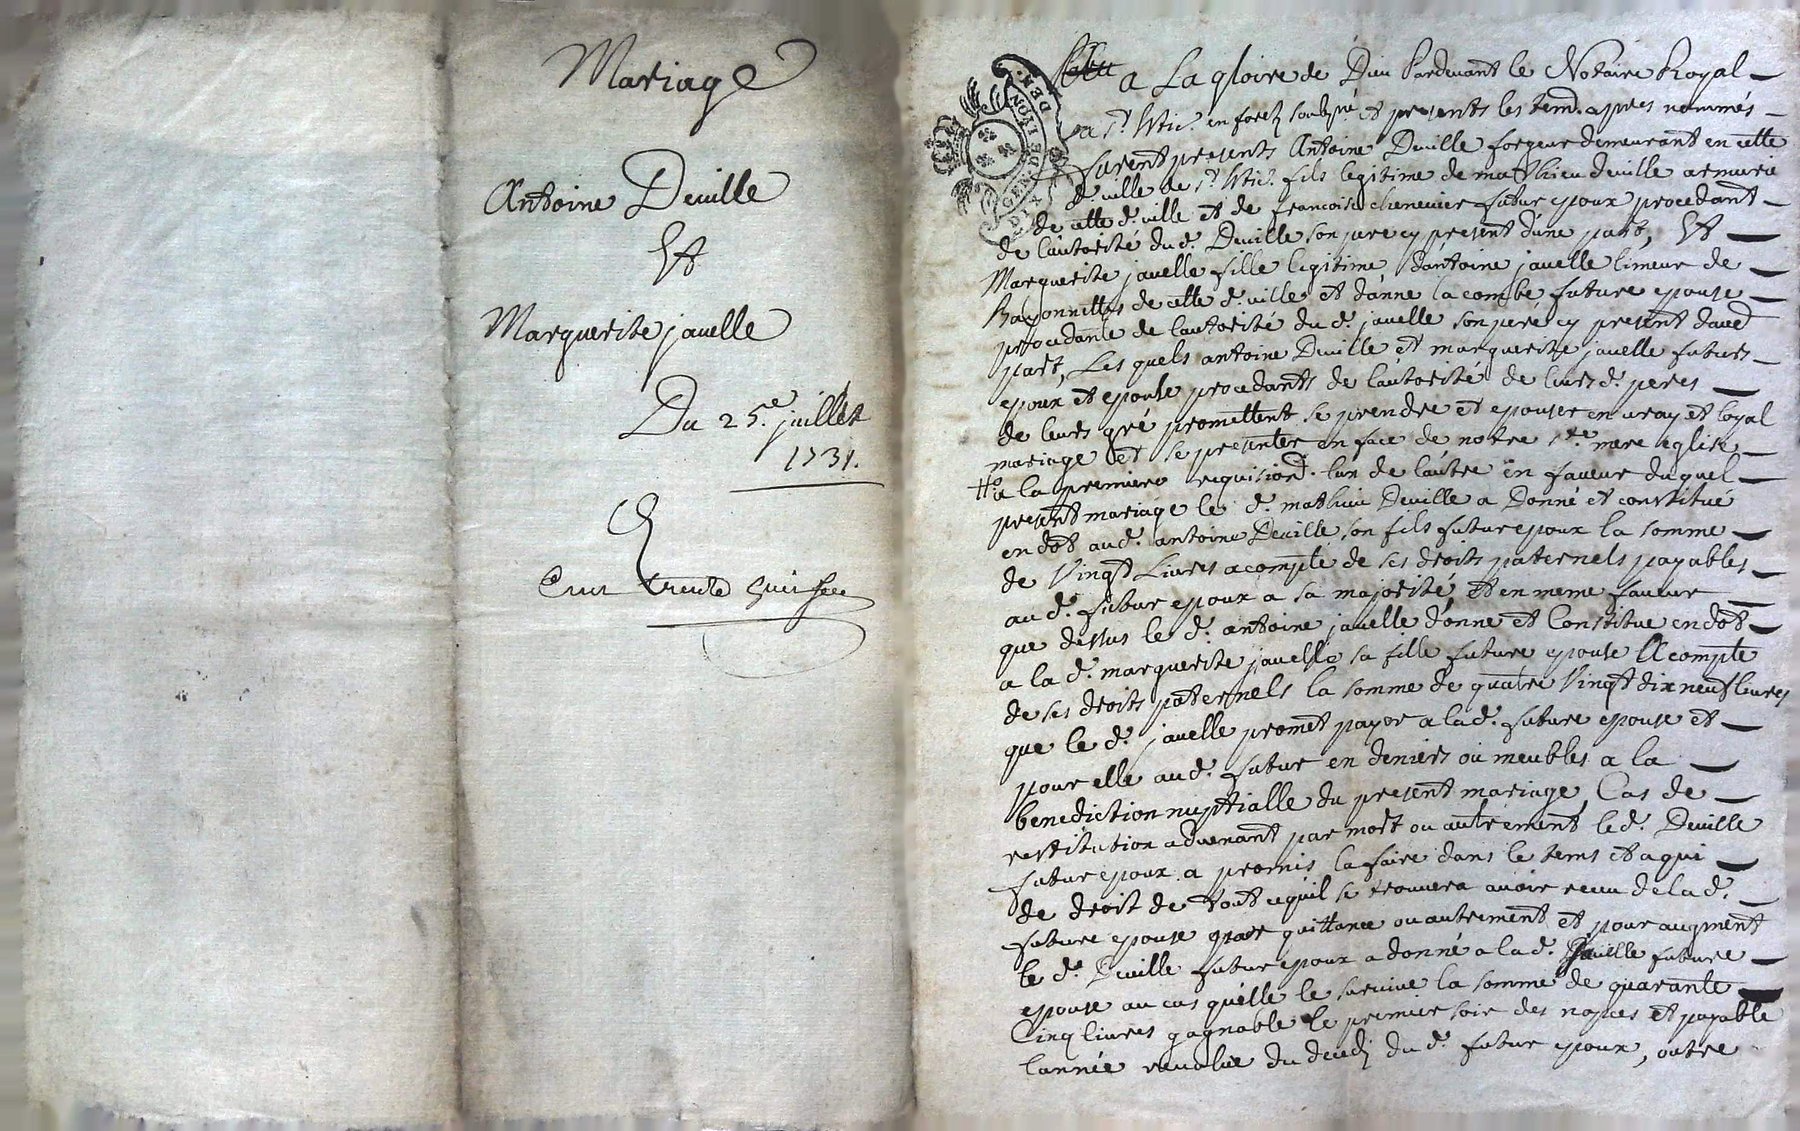 Mariage
Antoine Deville
Et
Marguerite javelle
Du 25.e juillet
1731.
Cent trente
GEN. DE LYON
DIX DEN.
a La gloire de Dieu Pardevant le Notaire Royal
a St. Etie. en forez soubsné et presents les temd. apres nommés
furent presents Antoine Deville forgeur demeurant en cette
d. ville de St. Etie. fils legitime de mathieu deville armurie
de cette d. ville et de francoise chenevier futur epoux procedant
de lautorité dud. Deville son pere cy present dune part, Et
Marguerite javelle fille legitime dantoine javelle limeur de
Bayonnettes de cette d. ville et danne lacombe future epouse
procedante de lautorité dud. javelle son pere cy present daued
part, Les quels antoine Deville et marguerite javelle futurs
epoux et epouse procedants de lautorité de leurs d. peres
de leurs gré promettent se prendre et epouser en vray et loyal
mariage et se presenter en face de notre ste. mere eglise
a la premiere requisiond. lun de lautre en faveur duquel
present mariage le d. mathieu Deville a Donné et constitué
en dot aud. antoine Deville son fils futur epoux la somme
de Vingt Livres acompte de ses droits paternels payables
aud. futur epoux a sa majorité, et en meme faveur
que dessus le d. antoine javelle donne et Constitue en dot
a la d. marguerite javelle sa fille future epouse Acompte
de ses droits paternels la somme de quatre Vingt dix neuf livres
que le d. javelle promet payer a lad. future epouse et
pour elle aud. futur en deniers ou meubles a la
benediction nuptialle du present mariage, Cas de
restitution advenant par mort ou autrement led. Deville
futur epoux a promis la faire dans le tems et a qui
de droit de tout cequil se trouvera avoir receu de la d.
future epouse par quittance ou autrement et pour augment
le d. Deville futur epoux a donné a la d. Javelle future
epouse au cas quelle le survive la somme de quarante
Cinq livres gagnable le premier soir des nopces et payable
lannée revolue du deceds du d. futur epoux, outre